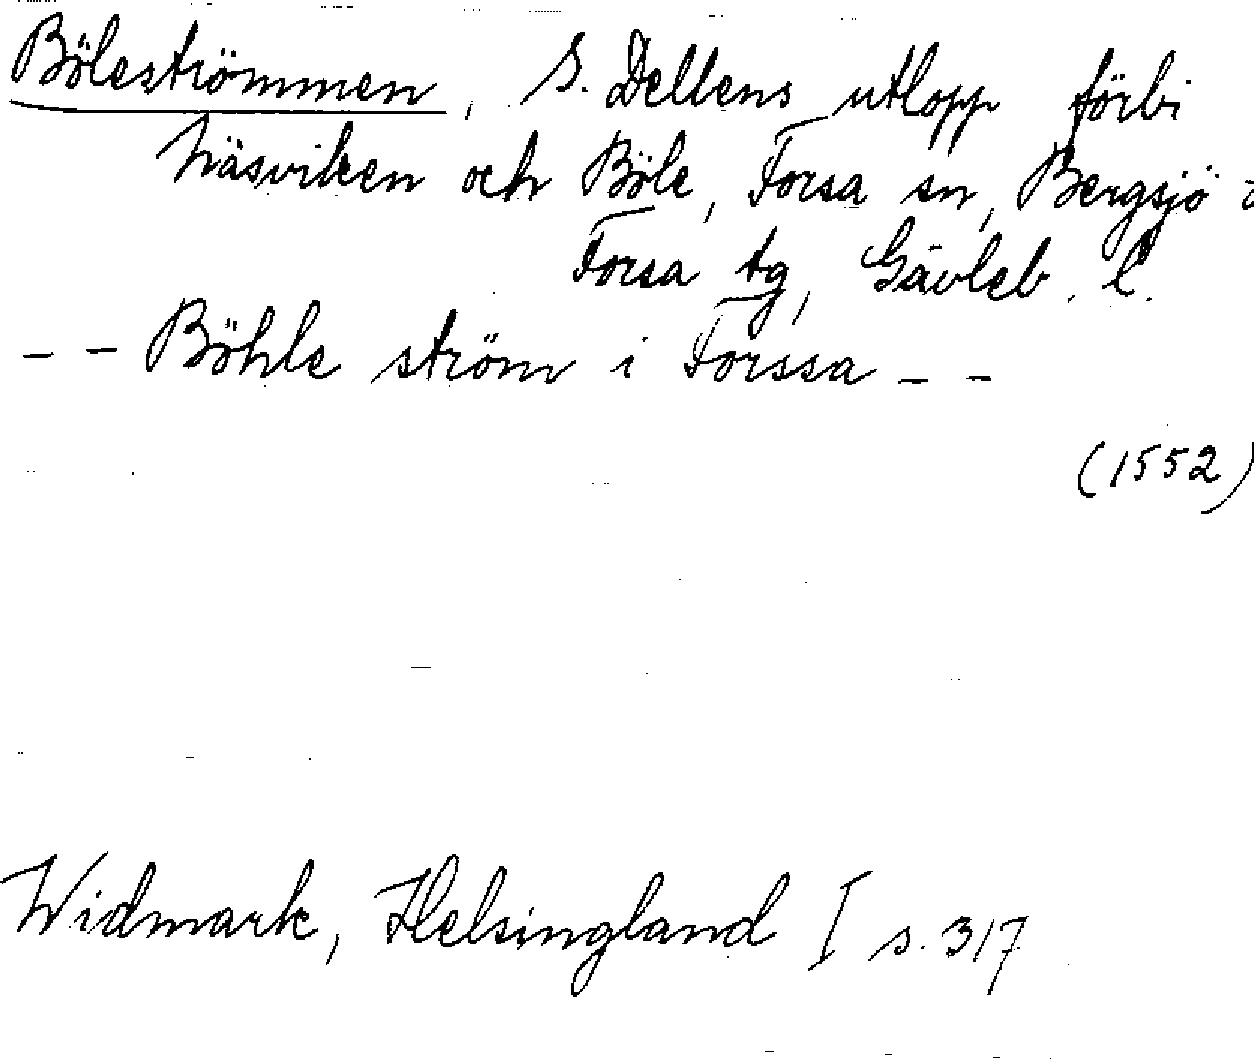 Böleströmmen, S. Dellens utlopp förbi
Näsviken och Böle, Forsa sn, Bergsjö
Forsa tg, Gävleb. l.
– – Böhle ström i Forssa – –
(1552)
Widmark, Helsingland I s. 317